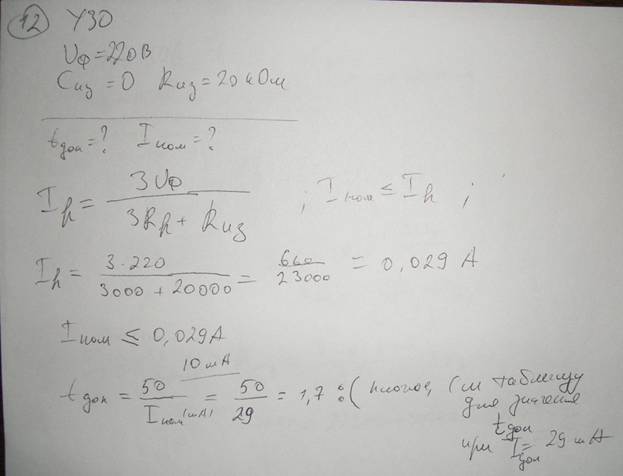 12 УЗО
Uф = 220В
Cиз = 0 Rиз = 20 кОм
tдоп = ? Iном = ?
Ih = 3Uф / (3Rh + Rиз) ; Iном ≤ Ih ;
Ih = 3·220 / (3000 + 20000) = 660 / 23000 = 0,029 А
Iном ≤ 0,029А
10 mA
tдоп = 50 / Iном(mA) = 50 / 29 = 1,7 (см таблицу
для значения
tдоп
при Iдоп = 29 mA